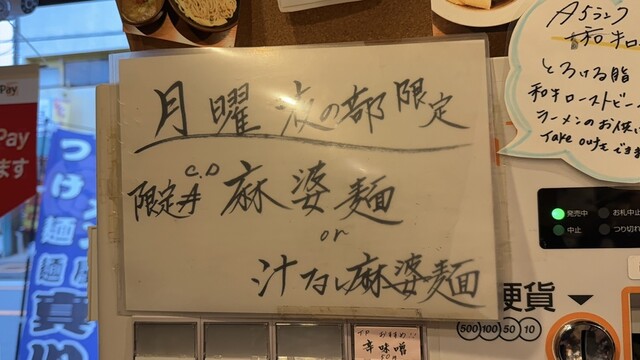 月曜夜の部限定
限定丼 C.D 麻婆麺
or
汁なし麻婆麺
A5ランク
和牛ロ
とろける脂
和牛ローストビー
ラーメンのお供
Take outもできま
Pay
Pay
ます
つけ麺屋
発売中
お札中止
中止
つり切れ
硬貨
500 100 50 10
おすすめ
辛味噌
50円